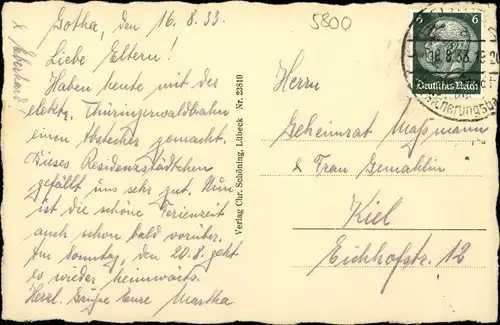 Gotha, den 16.8.33.
Liebe Eltern!
Haben heute mit der
elektr. Thüringerwaldbahn
einen Abstecher gemacht.
Dieses Residenzstädtchen
gefällt uns sehr gut. Nun
ist die schöne Ferienzeit
auch schon bald vorüber.
Am Sonntag, den 20.8. geht
es wieder heimwärts.
Herzl. Grüße Eure Martha
& Eberhard
Verlag Chr. Schöning, Lübeck Nr. 23810
5800
6 6
Deutsches Reich
Herrn
Geheimrat Maßmann
& Frau Gemahlin
Kiel
Eichhofstr. 12